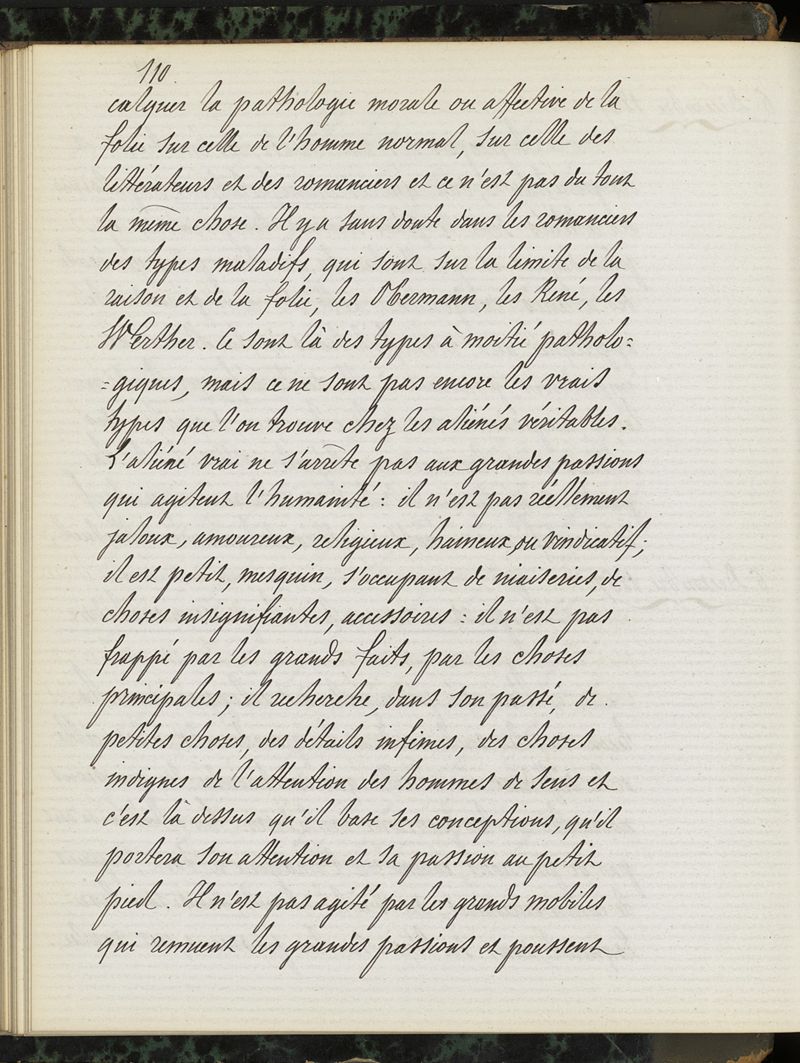 110
calquer la pathologie morale ou affective de la
folie sur celle de l'homme normal, sur celle des
littérateurs et des romanciers et ce n'est pas du tout
la même chose. Il y a sans doute dans les romanciers
des types maladifs, qui sont sur la limite de la
raison et de la folie, les Obermann, les René, les
Werther. Ce sont là des types à moitié patholo=
=giques, mais ce ne sont pas encore les vrais
types que l'on trouve chez les aliénés véritables.
L'aliéné vrai ne s'arrête pas aux grandes passions
qui agitent l'humanité : il n'est pas réellement
jaloux, amoureux, religieux, haineux ou vindicatif ;
il est petit, mesquin, s'occupant de niaiseries, de
choses insignifiantes, accessoires : il n'est pas
frappé par les grands faits, par les choses
principales ; il recherche, dans son passé, de
petites choses, des détails infimes, des choses
indignes de l'attention des hommes de sens et
c'est là dessus qu'il base ses conceptions, qu'il
portera son attention et sa passion au petit
pied. Il n'est pas agité par les grands mobiles
qui remuent les grandes passions et poussent